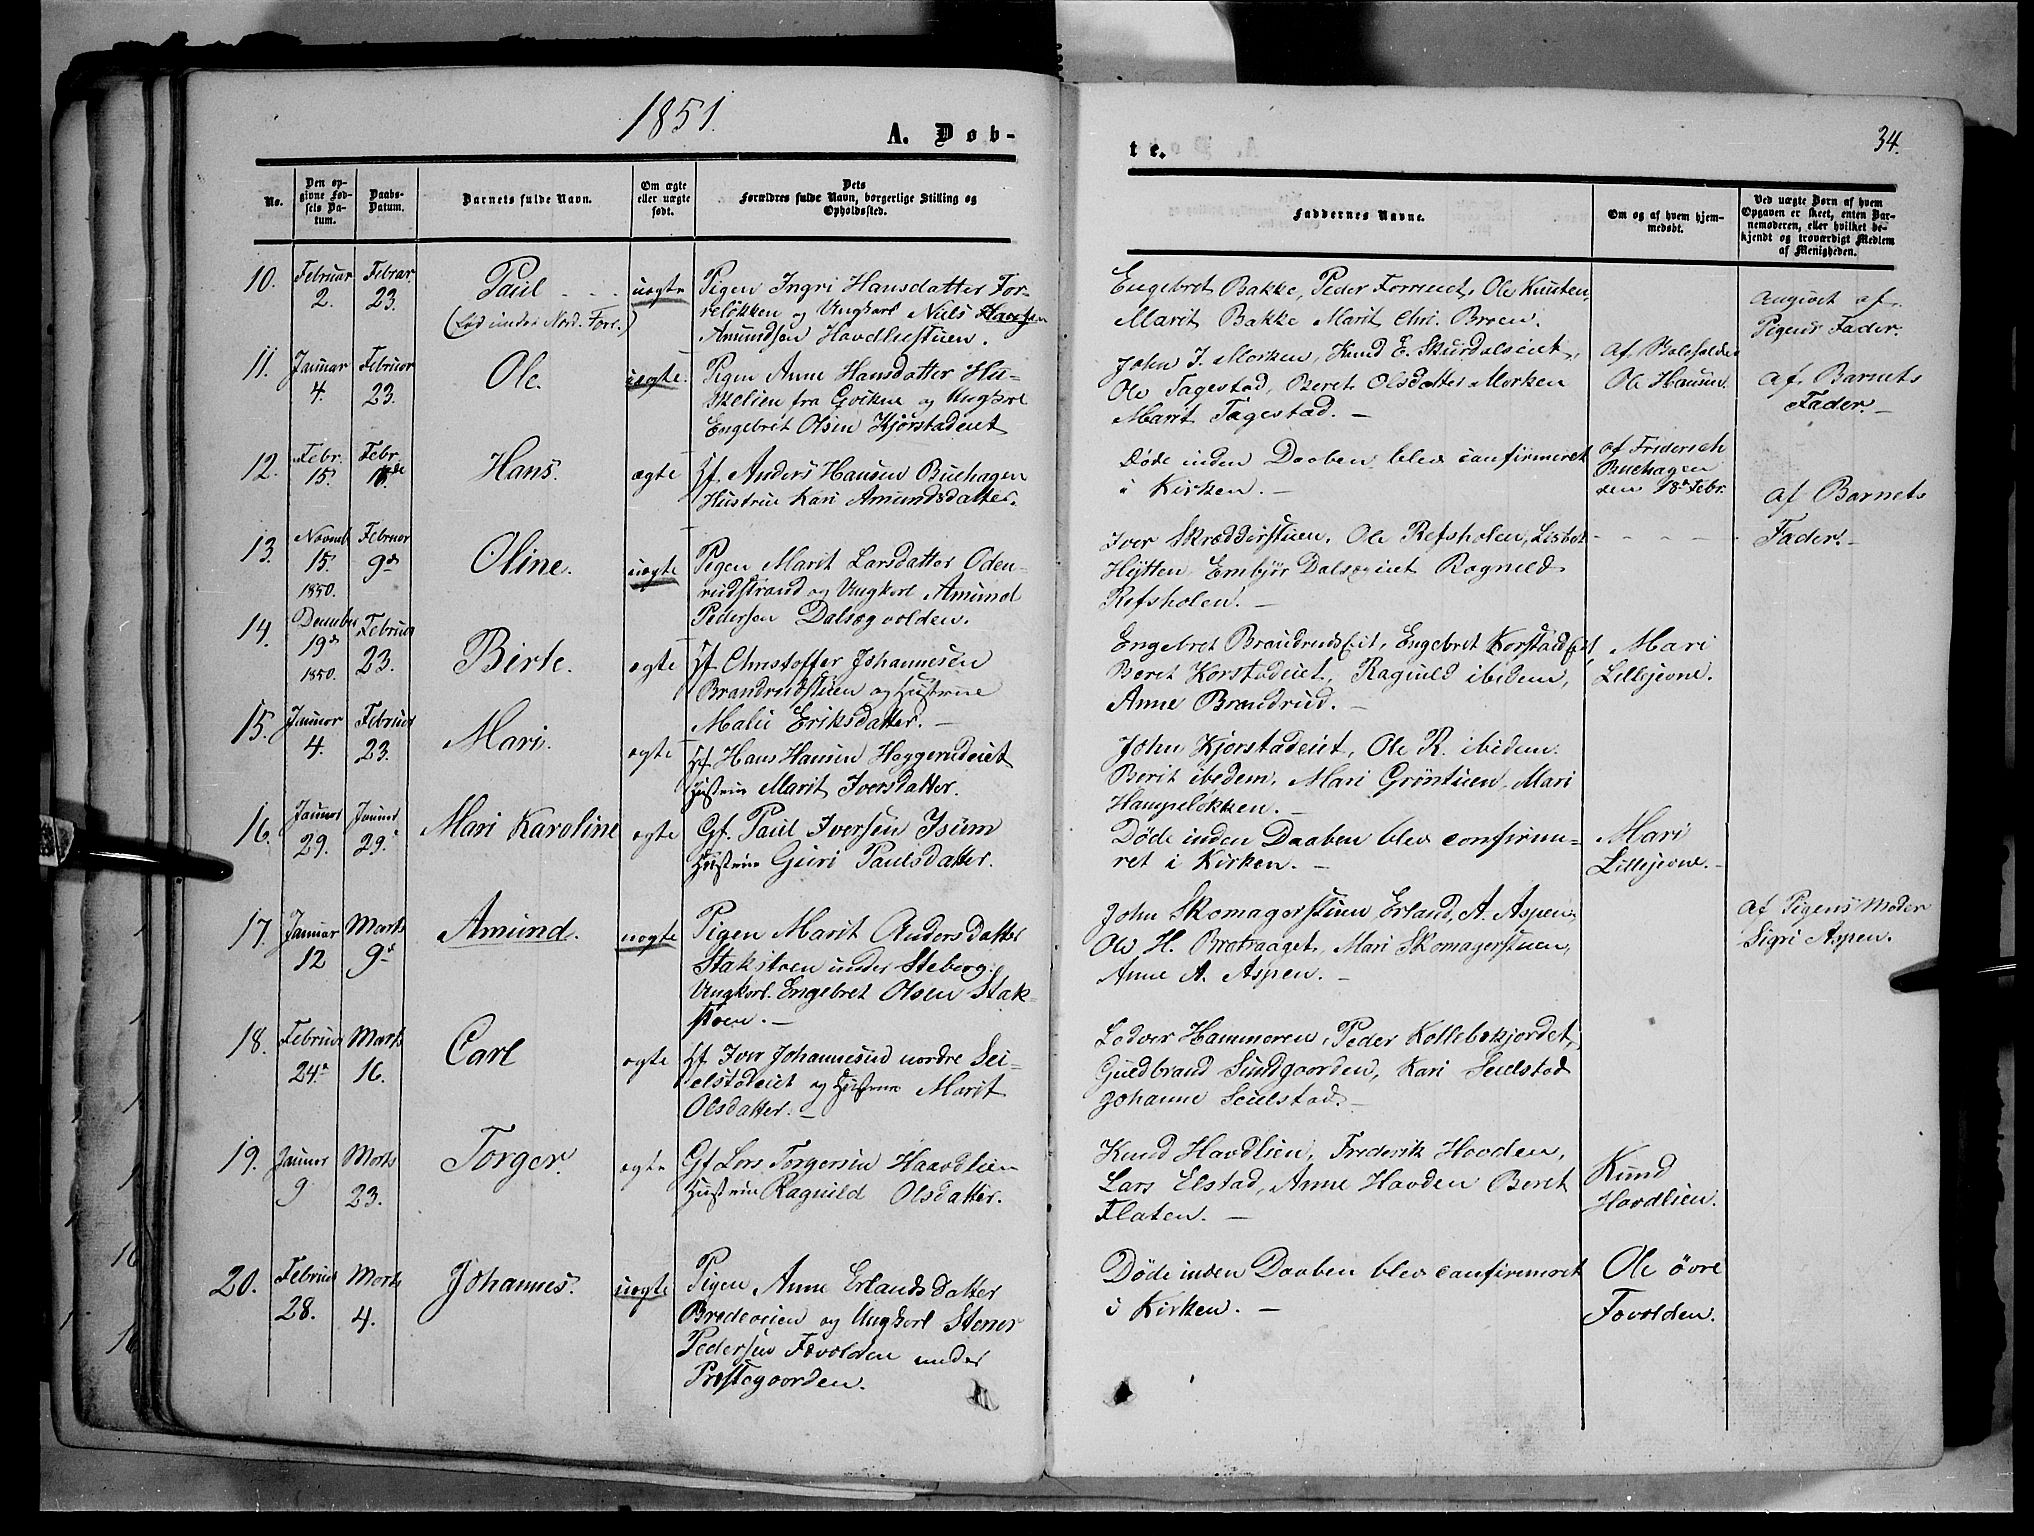 1851.
A. Døb-
No.
Den op-
givne Fød-
sels Da-
tum.
Daabs-
Datum.
Barnets fulde Navn.
Om ægte
eller uægte
født.
Dets
Forældres fulde Navn, borgerlige Stilling og
Opholdssted.
10.
Februar
2.
Febrar
23.
Paul
(Fød under Nord. Forr.)
uægte
Pigen Ingri Hansdatter For-
reløkken og Ungkarl Niels Hansen
Amundsen Havdliestuen.
11.
Januar
4.
Februar
23.
Ole.
uægte.
Pigen Anne Hansdatter Hu-
skelien fra Gvikne og Ungkrl
Engebret Olsen Kjorstadeiet
12.
Febr.
15.
Febr.
Hans.
ægte
Hf. Anders Hansen Buehagen
Hustrue Kari Amundsdatter.
13.
Novemb
15.
1850.
Februar
9de
Oline.
uægte
Pigen Marit Larsdatter Oden-
rudstrand og Ungkarl Amund
Pedersen Dalsegvolden.
14.
December
19de
1850.
Februar
23.
Birte.
ægte
Hf Christoffer Johannesen
Brandrudstuen og Hustrue
Malie Eriksdatter. —
15.
Januar
4.
Februar
23.
Mari.
ægte
Hf Hans Hansen Haggerudeiet
Hustrue Marit Iversdatter.
16.
Januar
29.
Januar
29.
Mari Karoline
ægte
Gf. Paul Iversen Isum
Hustrue Guri Paulsdatter.
17.
Januar
12
Marts
9de
Amund.
uægte
Pigen Marit Andersdatter
Stakstoen under Steberg.
Ungkarl. Engebret Olsen Stak-
stoen. —
18.
Februar
24de
Marts
16.
Carl
ægte
Hf. Iver Johannesen nordre Sei-
elstadeiet og Hustrue Marit
Olsdatter. —
19.
Januar
9
Marts
23.
Torger.
ægte
Gf Lars Torgersen Haavdlien
Hustrue Ragnild Olsdatter.
20.
Februar
28.
Marts
4.
Johannes.
uægte
Pigen Anne Erlandsdatter
Bredeveien og Ungkarl Stener
Pedersen Fævolden under
Præstegaarden.
te.
34.
Faddernes Navne.
Om og af hvem hjem-
medøbt.
Ved uægte Børn af hvem
Opgaven er skeet, enten Bar-
nemoderen, eller hvilket be-
kjendt og troværdigt Medlem
af Menigheden.
Engebret Bakke, Peder Forrestad, Ole Knutsen,
Marit Bakke Marit Chr. Broen.
Angivet af
Pigens Fader.
John J. Morken, Knud E. Skurdalseiet,
Ole Tagestad, Beret Olsdatter Morken
Marit Tagestad. —
Ole Hansen.
af Barnets
Fader. —
Døde inden Daaben blev confirmeret
i Kirken. —
af Friderich
Buehagen
den 18de Febr.
af Barnets
Fader. —
Iver Skrædderstuen, Ole Refsholen, Lisbet
Hytten, Embjør Dalsegeiet Ragnild
Refsholen. —
Engebret Brandrudseiet, Engebret Korstadeiet
Beret Korstadeiet, Ragnild ibidem,
Anne Brandrud. —
Mari
Lillejevne.
John Kjorstadeiet, Ole R. ibidem.
Berit ibedem, Mari Grøntuen, Mari
Hampeløkken. —
Døde inden Daaben blev confirme-
ret i Kirken. —
Mari
Lillejevne. —
John Skomagerstuen Erland A. Aspen,
Ole H. Bratvaaget, Mari Skomagerstuen,
Anne A. Aspen. —
af Pigens Moder
Sigri Aspen.
Lodver Hammeren, Peder Kollebekjordet,
Guldbrand Sundgaarden, Kari Seielstad
Johanne Seielstad. —
Knud Havdlien, Frederik Hovden,
Lars Elstad, Anne Havden Beret
Flaten. —
Knud
Havdlien.
Døde inden Daaben blev confirmeret
i Kirken. —
Ole øvre
Fovolden.